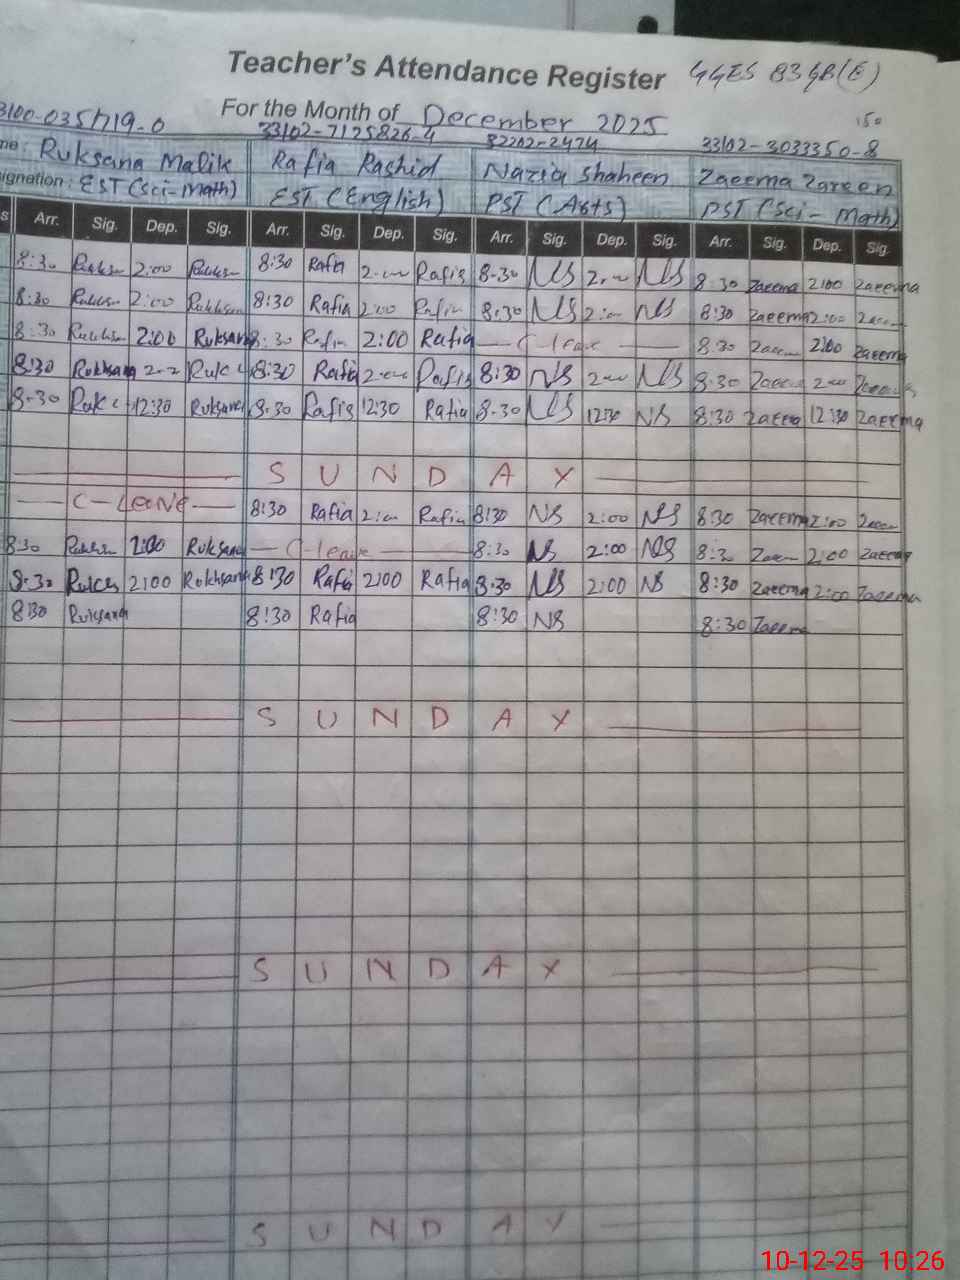 Teacher's Attendance Register GGES 83 GB(E)
For the Month of December 2025
33102-7125826-4 32202-2474 33102-3033350-8
Ruksana Malik Rafia Rashid Nazia Shaheen Zaeema Zareen
ignation: EST (Sci-Math) EST (English) PST (Arts) PST (Sci-Math)
s Arr. Sig. Dep. Sig. Arr. Sig. Dep. Sig. Arr. Sig. Dep. Sig. Arr. Sig. Dep. Sig.
8:30 2:00 8:30 Rafia Rafia 8-30 NS NS 8 30 Zaeema 2:00 Zaeema
8:30 2:00 8:30 Rafia 2:00 Rafia 8:30 NS NS 8:30 Zaeema 2:00
8:30 2:00 Ruksana 8:30 Rafia 2:00 Rafia C-leave 8:30 2:00 Zaeema
8:30 Rukhsana 8:30 Rafia Rafia 8:30 NS NS 8:30
8-30 12:30 Ruksana 8-30 Rafia 12:30 Rafia 8-30 NS 12:30 NS 8:30 Zaeema 12:30 Zaeema
S U N D A Y
C-Leave 8:30 Rafia Rafia 8:30 NS 2:00 NS 8:30 Zaeema 2:00
8:30 2:00 Ruksana C-leave 8:30 NS 2:00 NS 8:30 2:00 Zaeema
8:30 2:00 Rukhsana 8:30 Rafia 2:00 Rafia 8:30 NS 2:00 NS 8:30 Zaeema 2:00 Zaeema
8:30 Ruksana 8:30 Rafia 8:30 NS 8:30 Zaeema
S U N D A Y
S U N D A Y
S U N D A Y
10-12-25 10:26